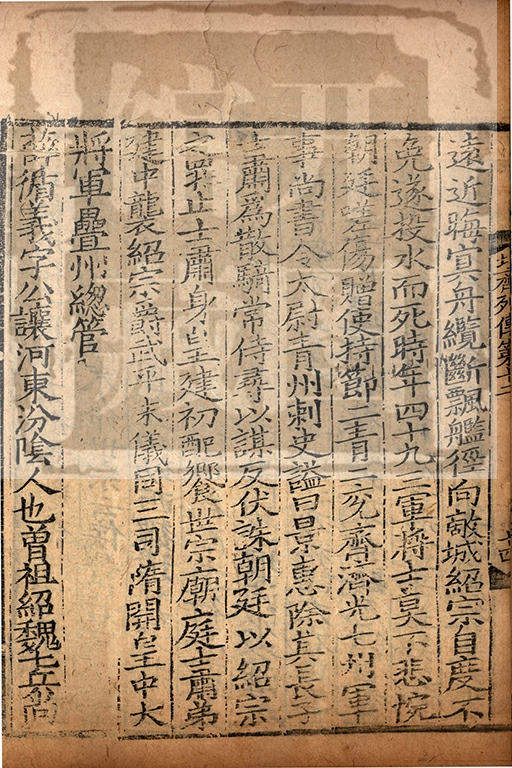 遠近晦冥舟纜斷飄艦徑向敵城紹宗自度不
免遂投水而死時年四十九三軍將士莫不悲惋
朝廷嗟傷贈使持節二青二兗齊濟光七州軍
事尚書令太尉青州刺史謚曰景惠除其長子
士肅爲散騎常侍尋以謀反伏誅朝廷以紹宗
之罪止士肅身皇建初配饗世宗廟庭士肅弟
建中襲紹宗爵武平末儀同三司隋開皇中大
將軍疊州總管
薛循義字公讓河東汾陰人也曾祖紹魏七兵尚
北齊列傳第十二